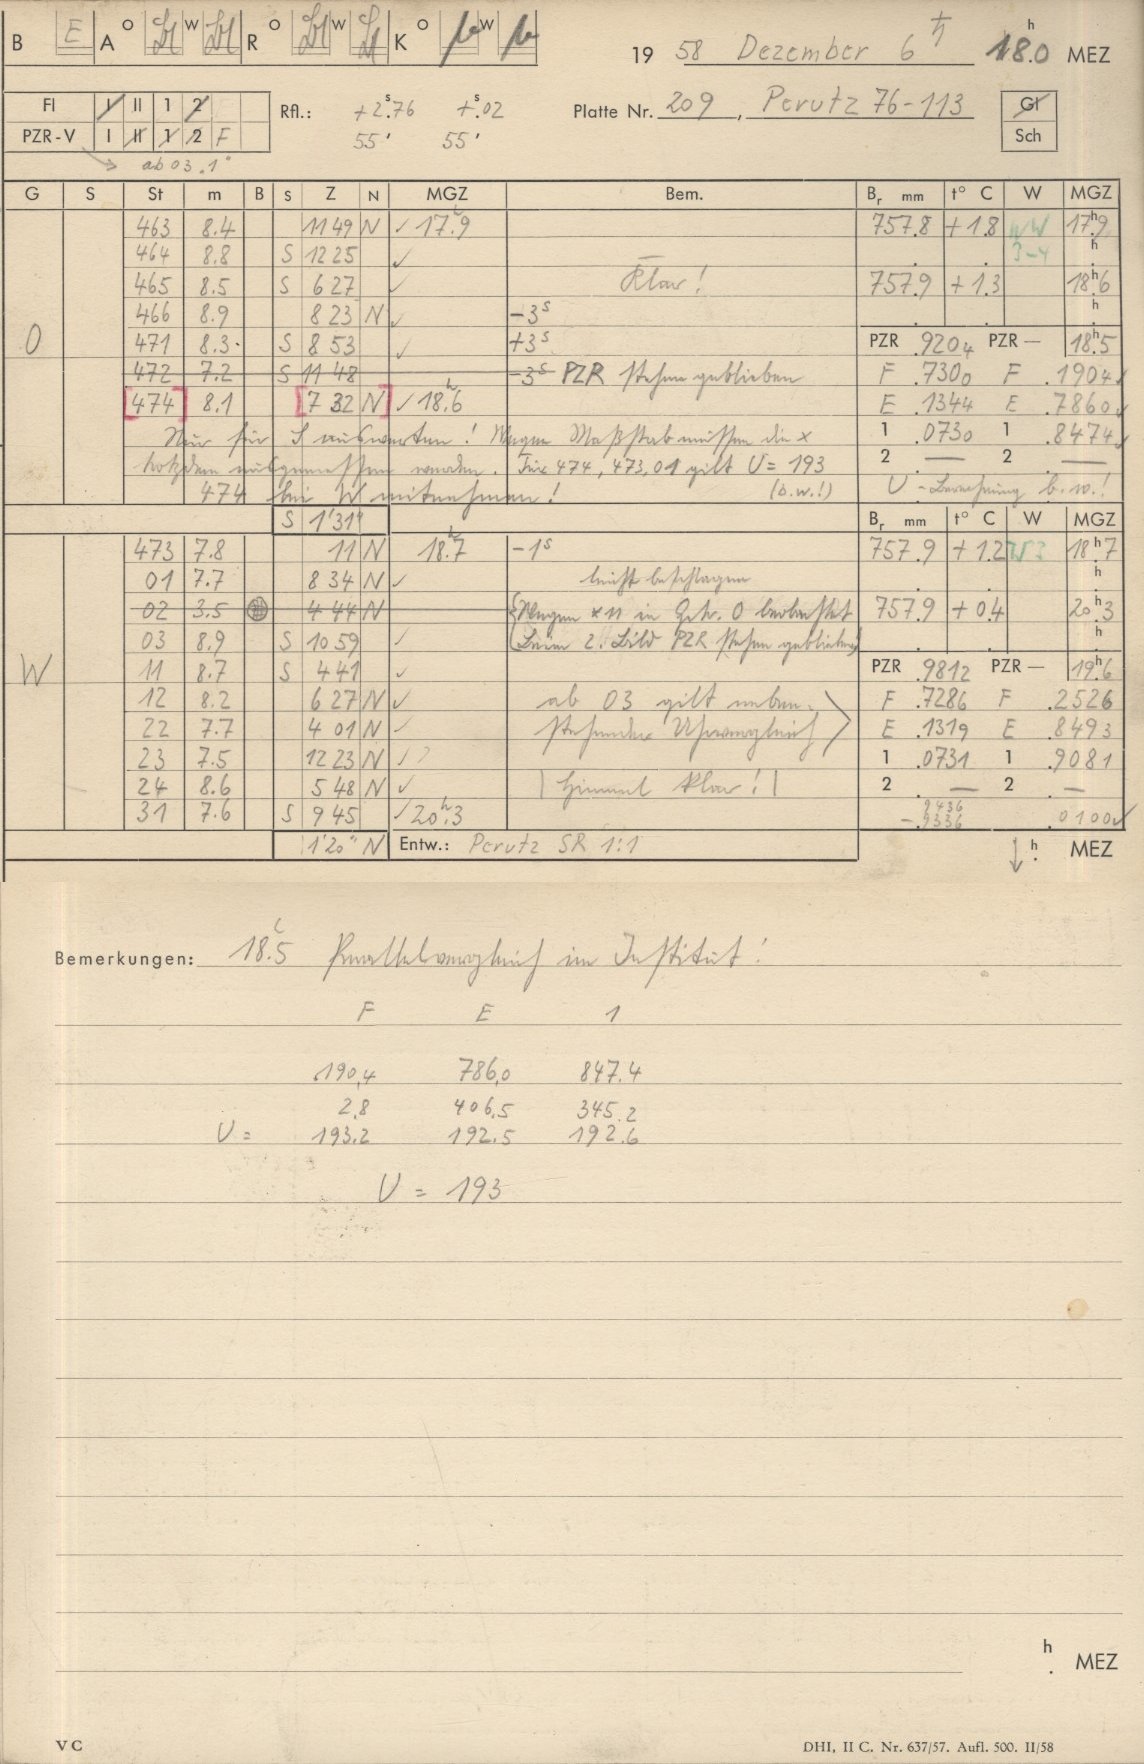 B E A O W R O W K O W
19 58 Dezember 6 ♄ 18.0 h MEZ
Fl I II 1 2
PZR-V I II 1 2 F
ab 03.1°
Rfl.: +2.s76 +.s02
55' 55'
Platte Nr. 209, Perutz 76-113
Gl
Sch
G S St m B S Z N MGZ Bem. Br mm t° C W MGZ
463 8.4 11 49 N ✓ 17.h9 757.8 +1.8 NW 17.h9
464 8.8 S 12 25 ✓ 3-4 h
465 8.5 S 6 27 ✓ Klar! 757.9 +1.3 18.h6
466 8.9 8 23 N ✓ -3s h
O 471 8.3 S 8 53 ✓ +3s PZR .9204 PZR — 18.h5
472 7.2 S 11 48 -3s PZR stehen geblieben F .7300 F .1904 ✓
[474] 8.1 [7 32 N] ✓ 18.h6 E .1344 E .7860 ✓
Nur für S auswerten! Wegen Maßstab müssen die x 1 .0730 1 .8474 ✓
trotzdem ausgemessen werden. Für 474, 473, 01 gilt U = 193 2 — 2 —
474 bei W mitnehmen! (b.w.!) U - Berechnung b.w.!
S 1'31" Br mm t° C W MGZ
473 7.8 11 N 18.h7 -1s 757.9 +1.2 18.h7
01 7.7 8 34 N ✓ leicht beschlagen h
02 3.5 4 44 N Wegen *11 in Gr. O beobachtet 757.9 +0.4 20.h3
03 8.9 S 10 59 ✓ (beim 2. Bild PZR stehen geblieben) h
W 11 8.7 S 4 41 ✓ PZR .9812 PZR — 19.h6
12 8.2 6 27 N ✓ ab 03 gilt neben- F .7286 F .2526
22 7.7 4 01 N ✓ stehender Uhrvergleich E .1319 E .8493
23 7.5 12 23 N ✓ 1 .0731 1 .9081
24 8.6 5 48 N ✓ | Himmel klar! | 2 — 2 —
31 7.6 S 9 45 ✓ 20.h3 9436
-.9336 .0100 ✓
1'20" N Entw.: Perutz SR 1:1 h MEZ
Bemerkungen: 18.5 Parallelvergleich im Institut!
F E 1
190,4 786,0 847.4
2,8 406,5 345.2
U = 193.2 192.5 192.6
U = 193
h
. MEZ
V C DHI, II C. Nr. 637/57. Aufl. 500. II/58